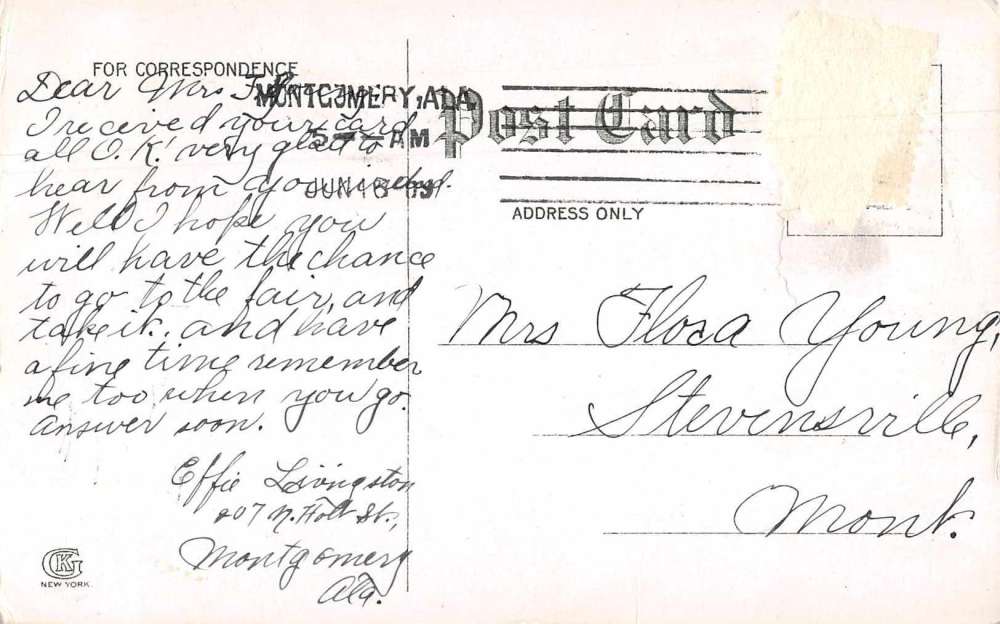 FOR CORRESPONDENCE
Dear Mrs
MONTGOMERY, ALA.
Post Card
I received your card
AM
all O.K. very glad to
hear from you indeed.
JUN 16
ADDRESS ONLY
Well I hope you
will have the chance
to go to the fair, and
take it. and have
a fine time remember
me too when you go.
Answer soon.
Effie Livingston
207 N. Holt St.,
Montgomery
Ala.
Mrs Flora Young,
Stevensville,
Mont.
CKG
NEW YORK.